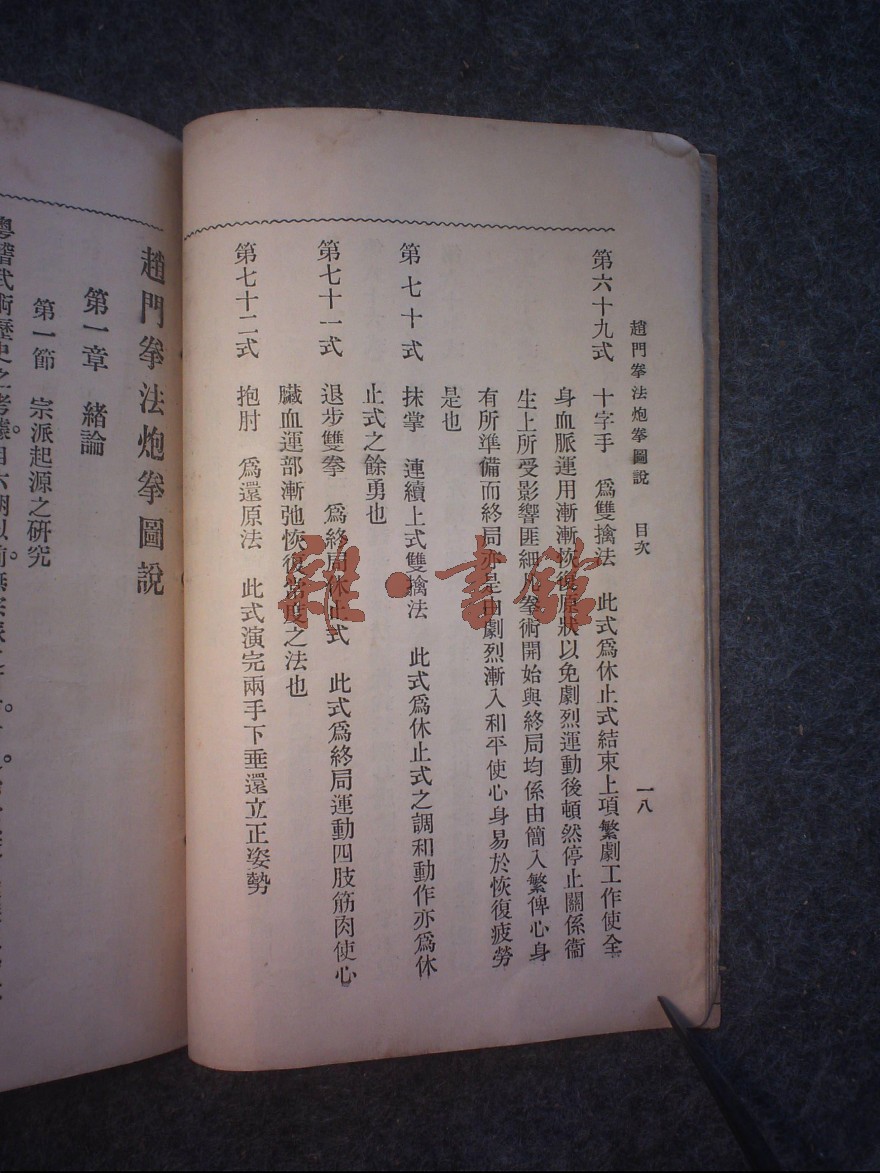 趙門拳法炮拳圖說 目次 一八
第六十九式 十字手 爲雙擒法 此式爲休止式結束上項繁劇工作使全
身血脈運用漸漸恢復原狀以免劇烈運動後頓然停止關係衞
生上所受影響匪細凡拳術開始與終局均係由簡入繁俾心身
有所準備而終局亦是由劇烈漸入和平使心身易於恢復疲勞
是也
第七十式 抹掌 連續上式雙擒法 此式爲休止式之調和動作亦爲休
止式之餘勇也
第七十一式 退步雙拳 爲終局休止式 此式爲終局運動四肢筋肉使心
臟血運部漸弛恢復常度之法也
第七十二式 抱肘 爲還原法 此式演完兩手下垂還立正姿勢
趙門拳法炮拳圖說
第一章 緒論
第一節 宗派起源之研究
粵稽武術歷史之考據自六朝以前
雜·書館